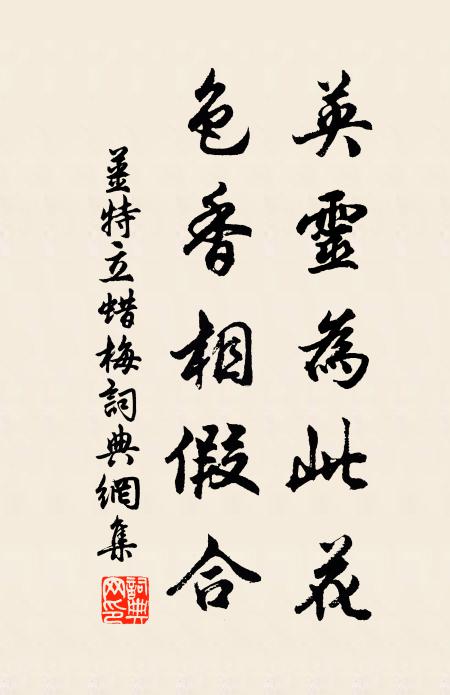 英靈為此花
色香相假合
薑特立蜡梅詞典網集
詞典網印